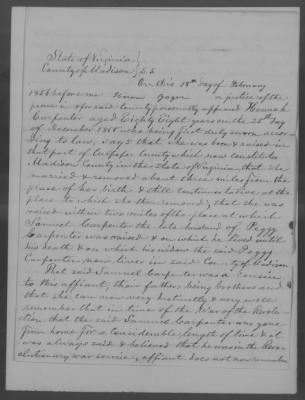 State of Virginia
County of Madison } S.S.
On this 18th day of February
1856 before me Simeon Yager a justice of the
peace in & for said county personally appeard Hannah
Carpenter aged Eighty Eight years on the 25th day
of December 1855 who being first duly sworn accor
ding to law, says that she was born & raised in
that part of Culpeper County which now constitutes
Madison County in the State of Virginia, that she
married & removed about three miles from the
place of her birth & still continues to live at the
place to which she then removed; that she was
raised within two miles of the place at which
Samuel Carpenter the late husband of Peggy
Carpenter was raised & on which he lived until
his death & on which his widow the said Peggy
Carpenter now lives in said County of Madison
That said Samuel Carpenter was a cousin
to this affiant, their fathers being brothers and
that she can now very distinctly & very well
remember that in time of the War of the Revolu-
tion that the said Samuel Carpenter was gone
from home for a considerable length of time & it
was always said & believed that he was in the Revo-
olutionary war service, affiant does not now remember